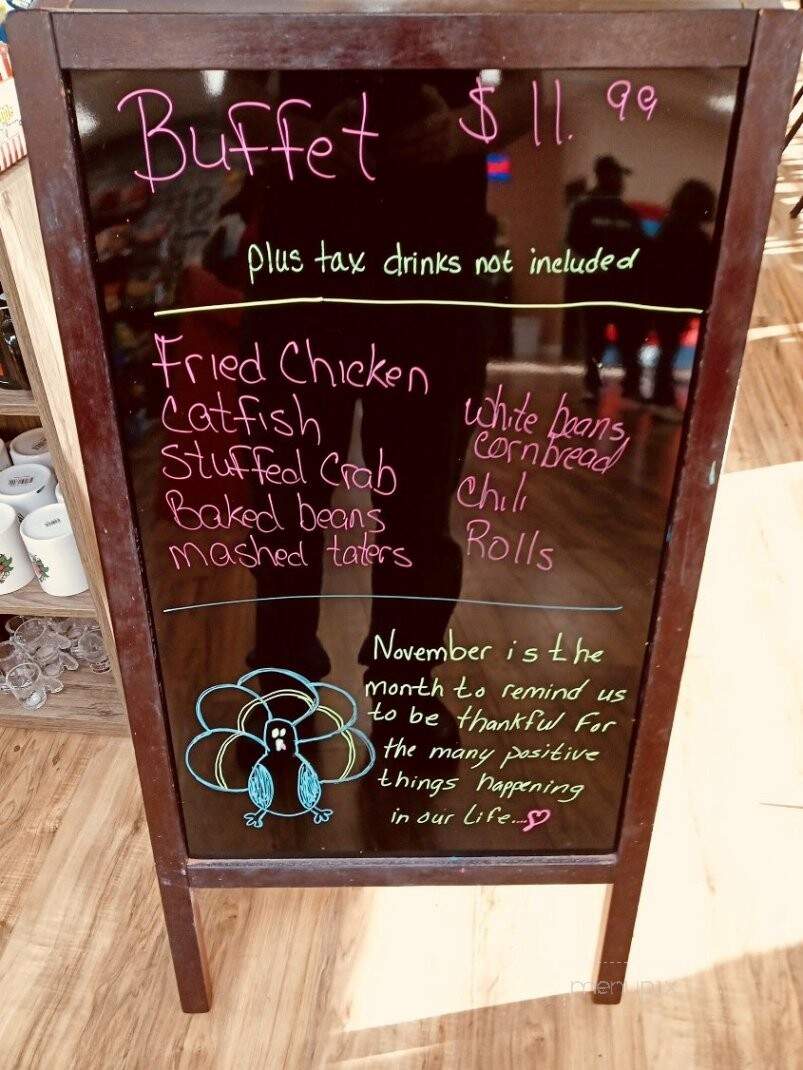 Buffet $11.99
plus tax drinks not included
Fried Chicken
Catfish
Stuffed Crab
Baked beans
mashed taters
white beans,
cornbread
Chili
Rolls
November is the
month to remind us
to be thankful For
the many positive
things happening
in our Life...
menupix